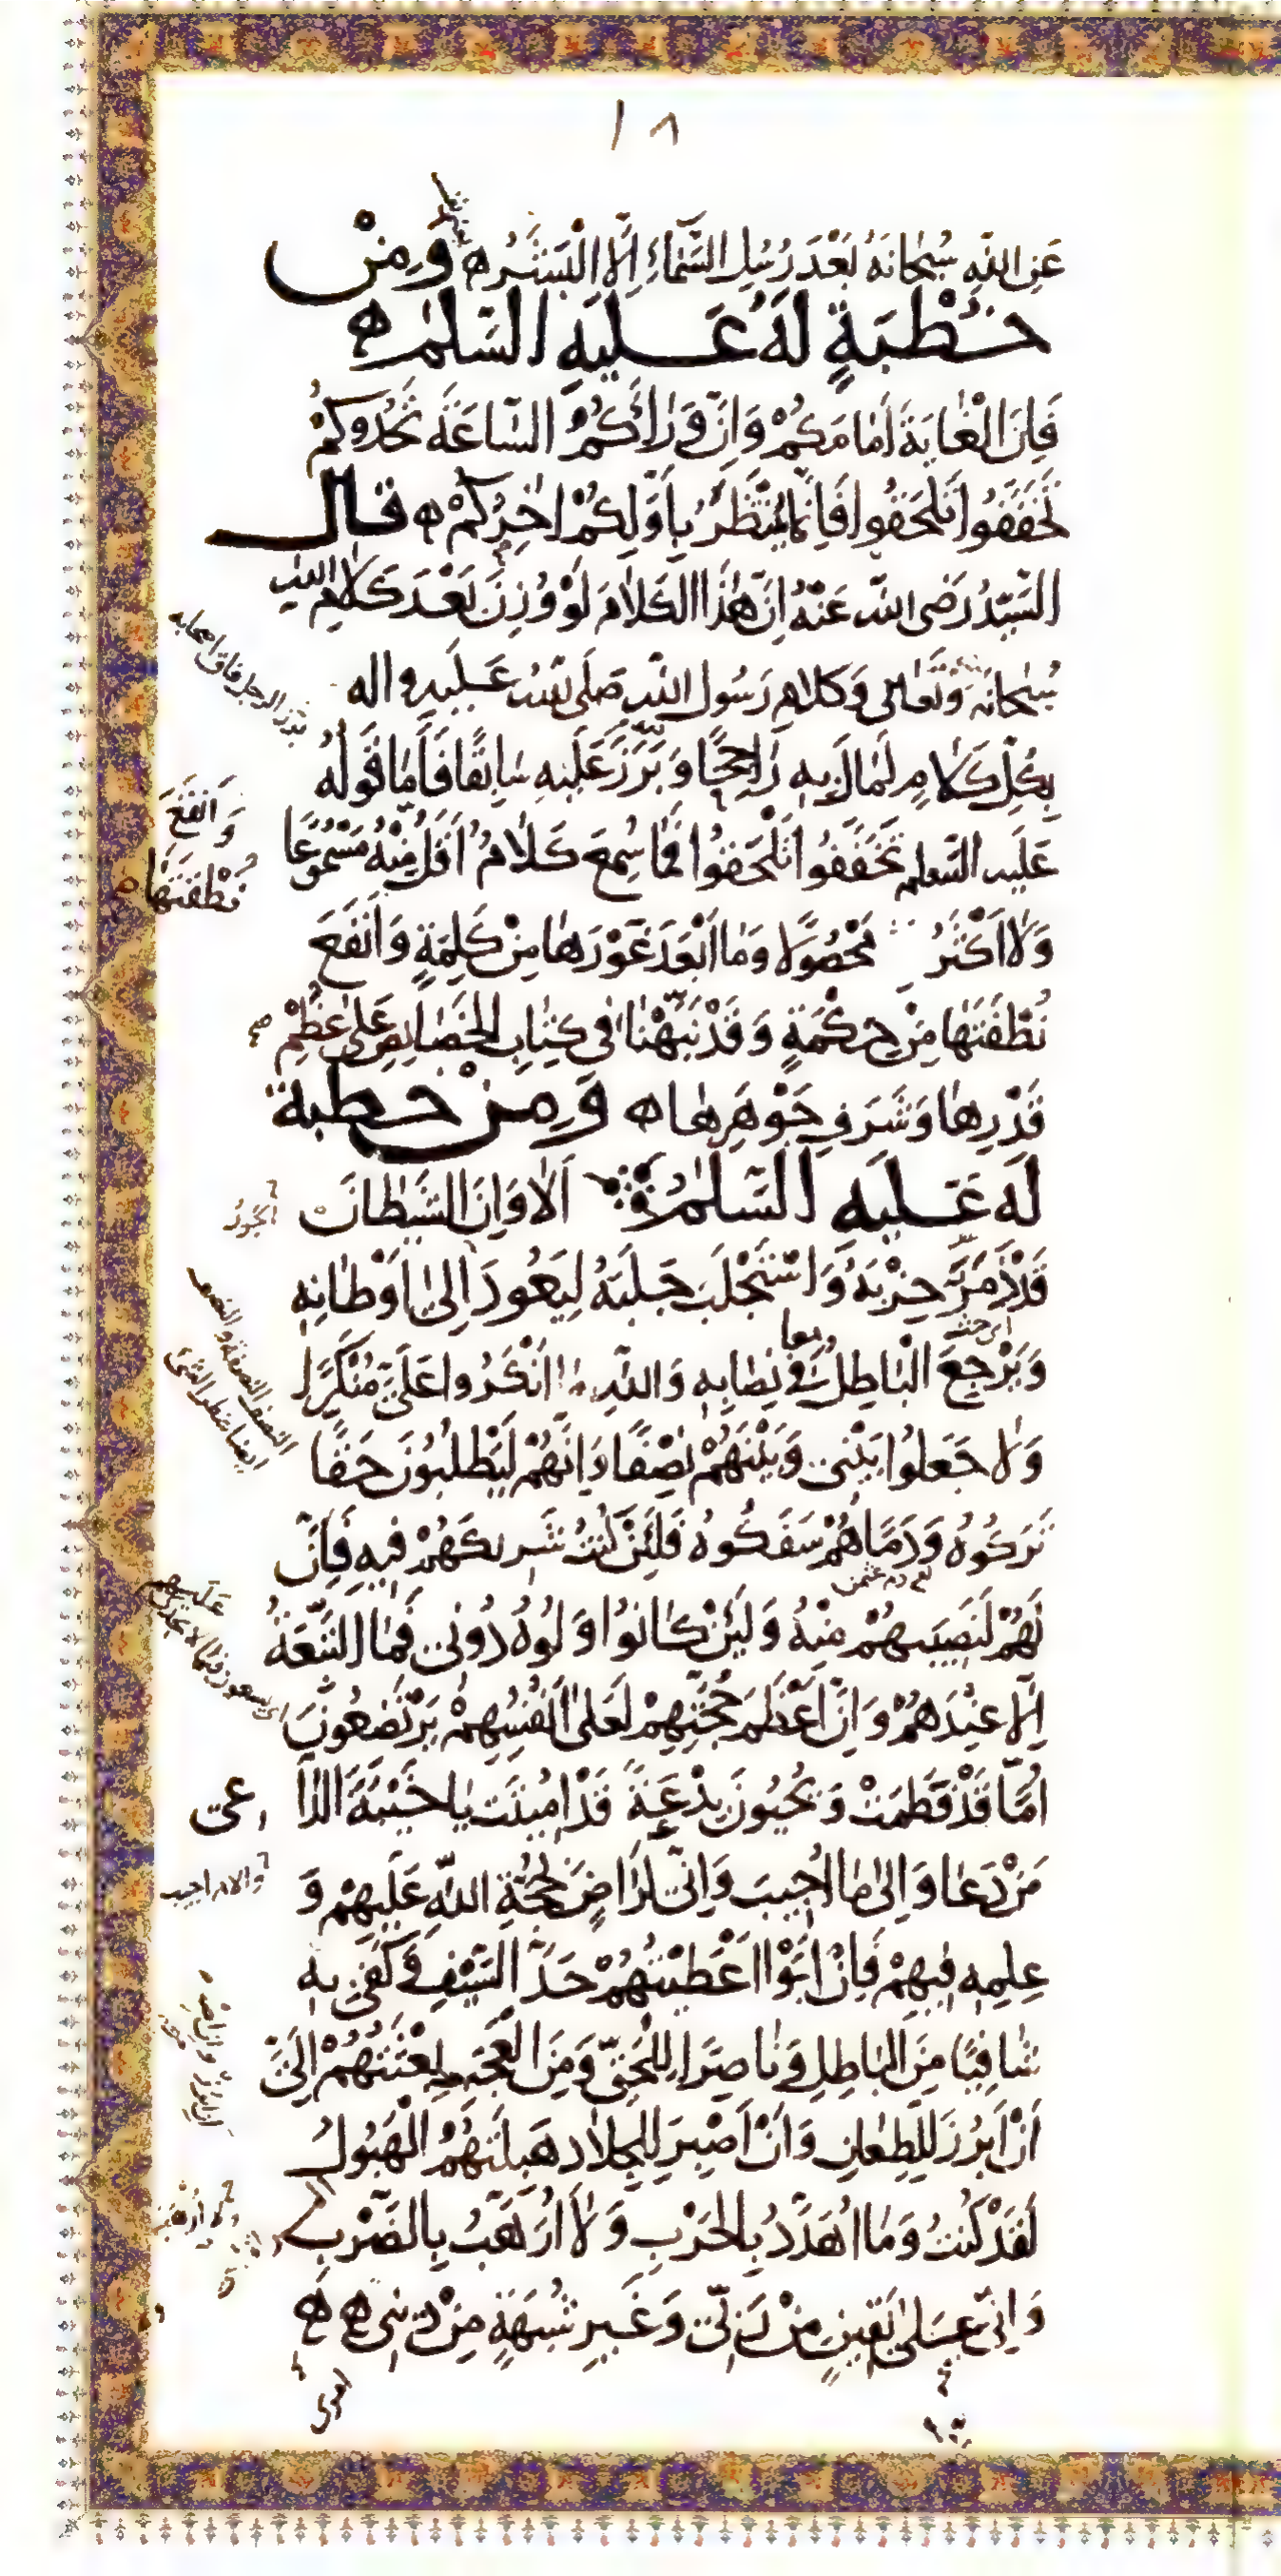 ١٨
عَنِ اللّٰهِ سُبْحَانَهُ بَعْدَ رُسُلِ السَّمَاءِ إِلَّا الْبَشَرُ ه وَمِنْ
خُطْبَةٍ لَهُ عَلَيْهِ السَّلٰمُ ه
فَإِنَّ الْغَايَةَ أَمَامَكُمْ وَإِنَّ وَرَاءَكُمُ السَّاعَةَ تَحْدُوكُمْ
تَخَفَّفُوا تَلْحَقُوا فَإِنَّمَا يُنْتَظَرُ بِأَوَّلِكُمْ اٰخِرُكُمْ ه قال
السَّيِّدُ رَضِىَ اللّٰه عَنْهُ إِنَّ هٰذَا الكَلَامَ لَوْ وُزِنَ بَعْدَ كَلَامِ اللّٰهِ
سُبْحَانَهُ وَتَعَالى وَكَلَامِ رَسُولِ اللّٰهِ صَلَّى اللّٰه عَلَيهِ واله
بِكُلِّ كَلَامٍ لَمَالَ بِهِ رَاجِحًا وَبَرَّزَ عَلَيْهِ سَابِقًا فَأَمَّا قَوْلُهُ
عَلَيهِ السَّلم تَخَفَّفُوا تَلْحَقُوا فَمَا سُمِعَ كَلَامٌ أَقَلُّ مِنْهُ مَسْمُوعًا
وَلَا أَكْثَرُ مَحْصُولًا وَمَا أَبْعَدَ غَوْرَهَا مِنْ كَلِمَةٍ وَأَنْقَعَ
نُطْفَتَهَا مِنْ حِكْمَةٍ وَقَدْ نَبَّهْنَا فِى كِتَابِ الْخَصَائِصِ عَلىٰ عِظَمِ
قَدْرِهَا وَشَرَفِ جَوْهَرِهَا ه وَمِنْ خطبة
لَهُ عَلَيهِ السَّلٰمُ أَلَا وَإِنَّ الشَّيْطَانَ
قَدْ ذَمَّرَ حِزْبَهُ وَاسْتَجْلَبَ جَلَبَهُ لِيَعُودَ إِلىٰ أَوْطَانِهِ
وَيَرْجِعَ الْبَاطِلُ فِي نِصَابِهِ وَاللّٰهِ مَا أَنْكَرُوا عَلَيَّ مُنْكَرًا
وَلَا جَعَلُوا بَيْنِى وَبَيْنَهُمْ نِصْفًا وَإِنَّهُمْ لَيَطْلُبُونَ حَقًّا
تَرَكُوهُ وَدَمًا هُمْ سَفَكُوهُ فَلَئِنْ كُنْتُ شَرِيكَهُمْ فِيهِ فَإِنَّ
لَهُمْ لَنَصِيبَهُمْ مِنْهُ وَلَئِنْ كَانُوا وَلُوهُ دُونِى فَمَا التَّبِعَةُ
إِلَّا عِنْدَهُمْ وَإِنَّ أَعْظَمَ حُجَّتِهِمْ لَعَلىٰ أَنْفُسِهِمْ يَرْتَضِعُونَ
أُمًّا قَدْ فَطَمَتْ وَيُحْيُونَ بِدْعَةً قَدْ أُمِيتَتْ يَا خَيْبَةَ الدَّا
عى
مَنْ دَعَا وَإِلىٰ مَا أُجِيبَ وَإِنِّى لَرَاضٍ بِحُجَّةِ اللّٰهِ عَلَيْهِمْ وَ
عِلْمِهِ فِيهِمْ فَإِنْ أَبَوْا أَعْطَيْتُهُمْ حَدَّ السَّيْفِ وَكَفَى بِهِ
شَافِيًا مِنَ البَاطِلِ وَنَاصِرًا لِلْحَقِّ وَمِنَ الْعَجَبِ بَعْثَتُهُمْ إِلَيَّ
أَنْ أَبْرُزَ لِلطِّعَانِ وَأَنْ أَصْبِرَ لِلْجِلَادِ هَبِلَتْهُمُ الْهَبُولُ
لَقَدْ كُنْتُ وَمَا أُهَدَّدُ بِالْحَرْبِ وَلَا أُرَهَّبُ بِالضَّرْبِ
وَإِنِّى عَلىٰ يَقِينٍ مِنْ رَبِّى وَغَيْرِ شُبْهَةٍ مِنْ دِينِى ه ه
وَأَنْقَعَ
نُطْفَتَهَا